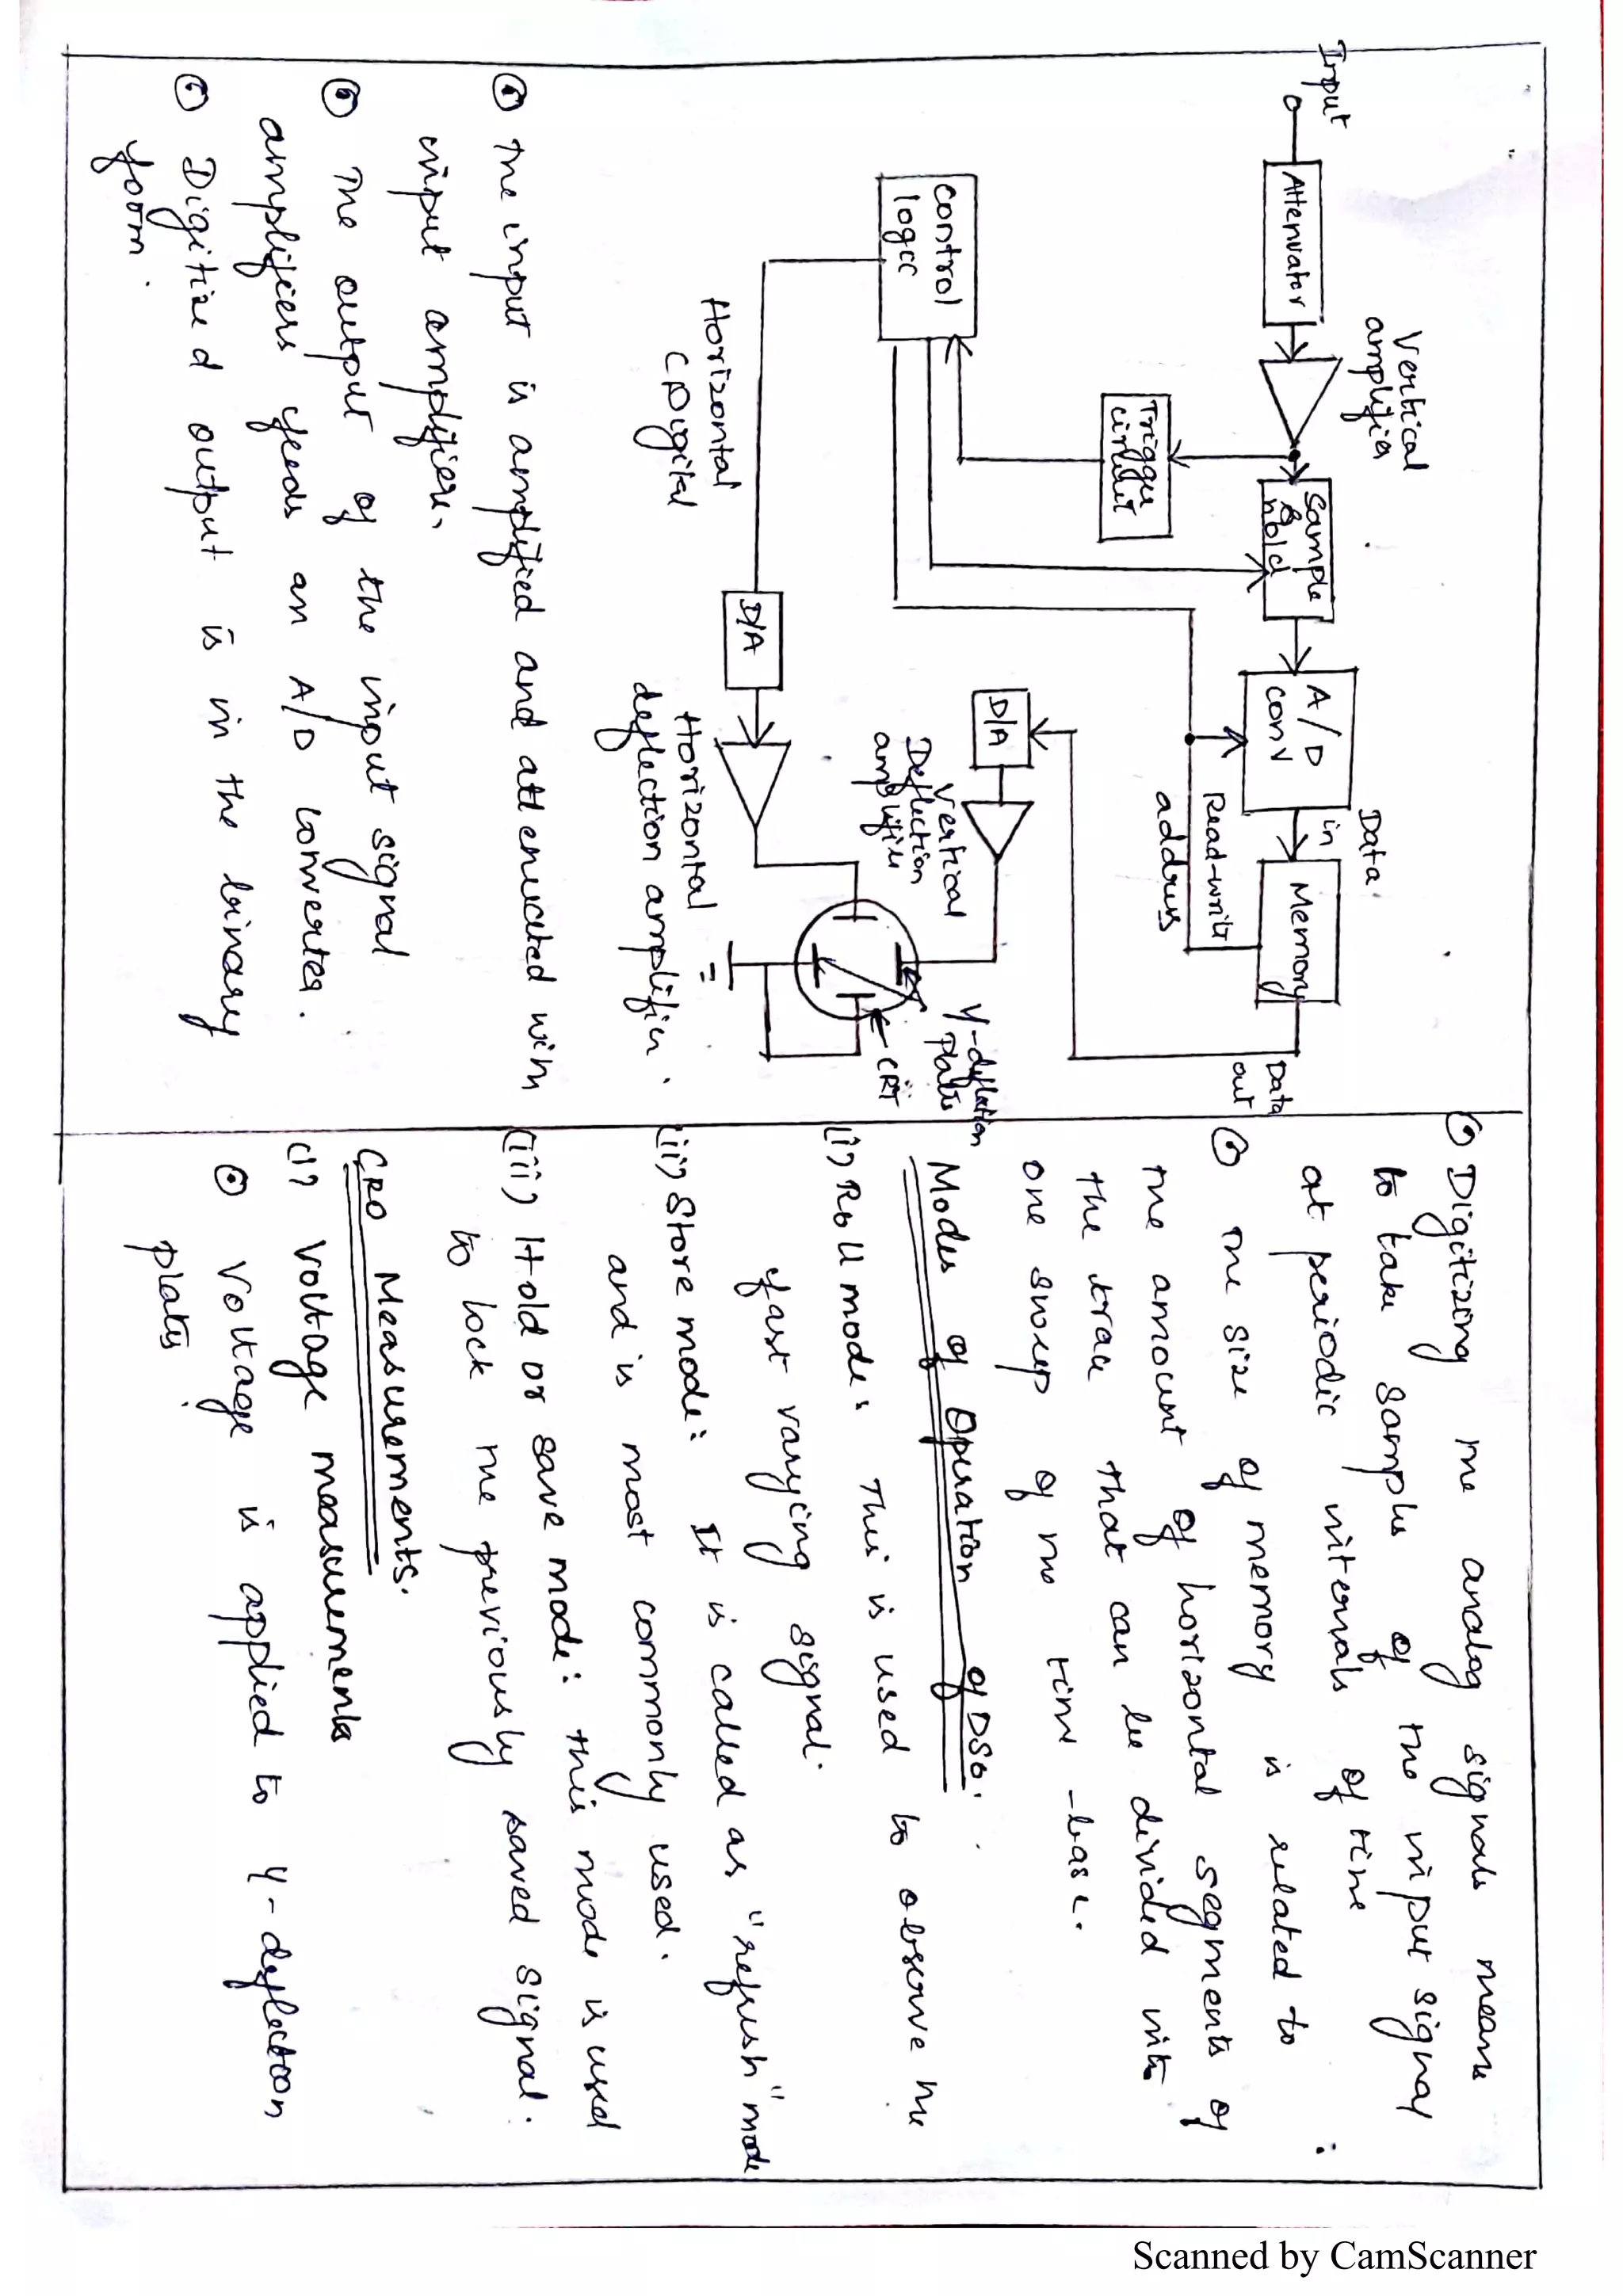 Input
Attenuator
Vertical
amplifier
Sample
& hold
A/D
conv
Data
in
Memory
Data
out
Trigger
circuit
Read-write
address
Control
logic
D/A
Vertical
Deflection
amplifier
Y-deflection
Plates
CRT
Horizontal
(Digital
D/A
Horizontal
deflection amplifier.
The input is amplified and attenuated with
input amplifier.
The output of the input signal
amplifiers feeds an A/D converter.
Digitized output is in the binary
form.
Digitizing the analog signals means
to take samples of the input signal
at periodic intervals of time
The size of memory is related to
the amount of horizontal segments of
the trace that can be divided into
one sweep of the time-base.
Modes of Operation of DSO.
(i) Roll mode: This is used to observe the
fast varying signal.
(ii) Store mode: It is called as "refresh" mode
and is most commonly used.
(iii) Hold or save mode: this mode is used
to lock the previously saved signal.
CRO Measurements.
(1) Voltage measurements
Voltage is applied to Y-deflection
plates
Scanned by CamScanner